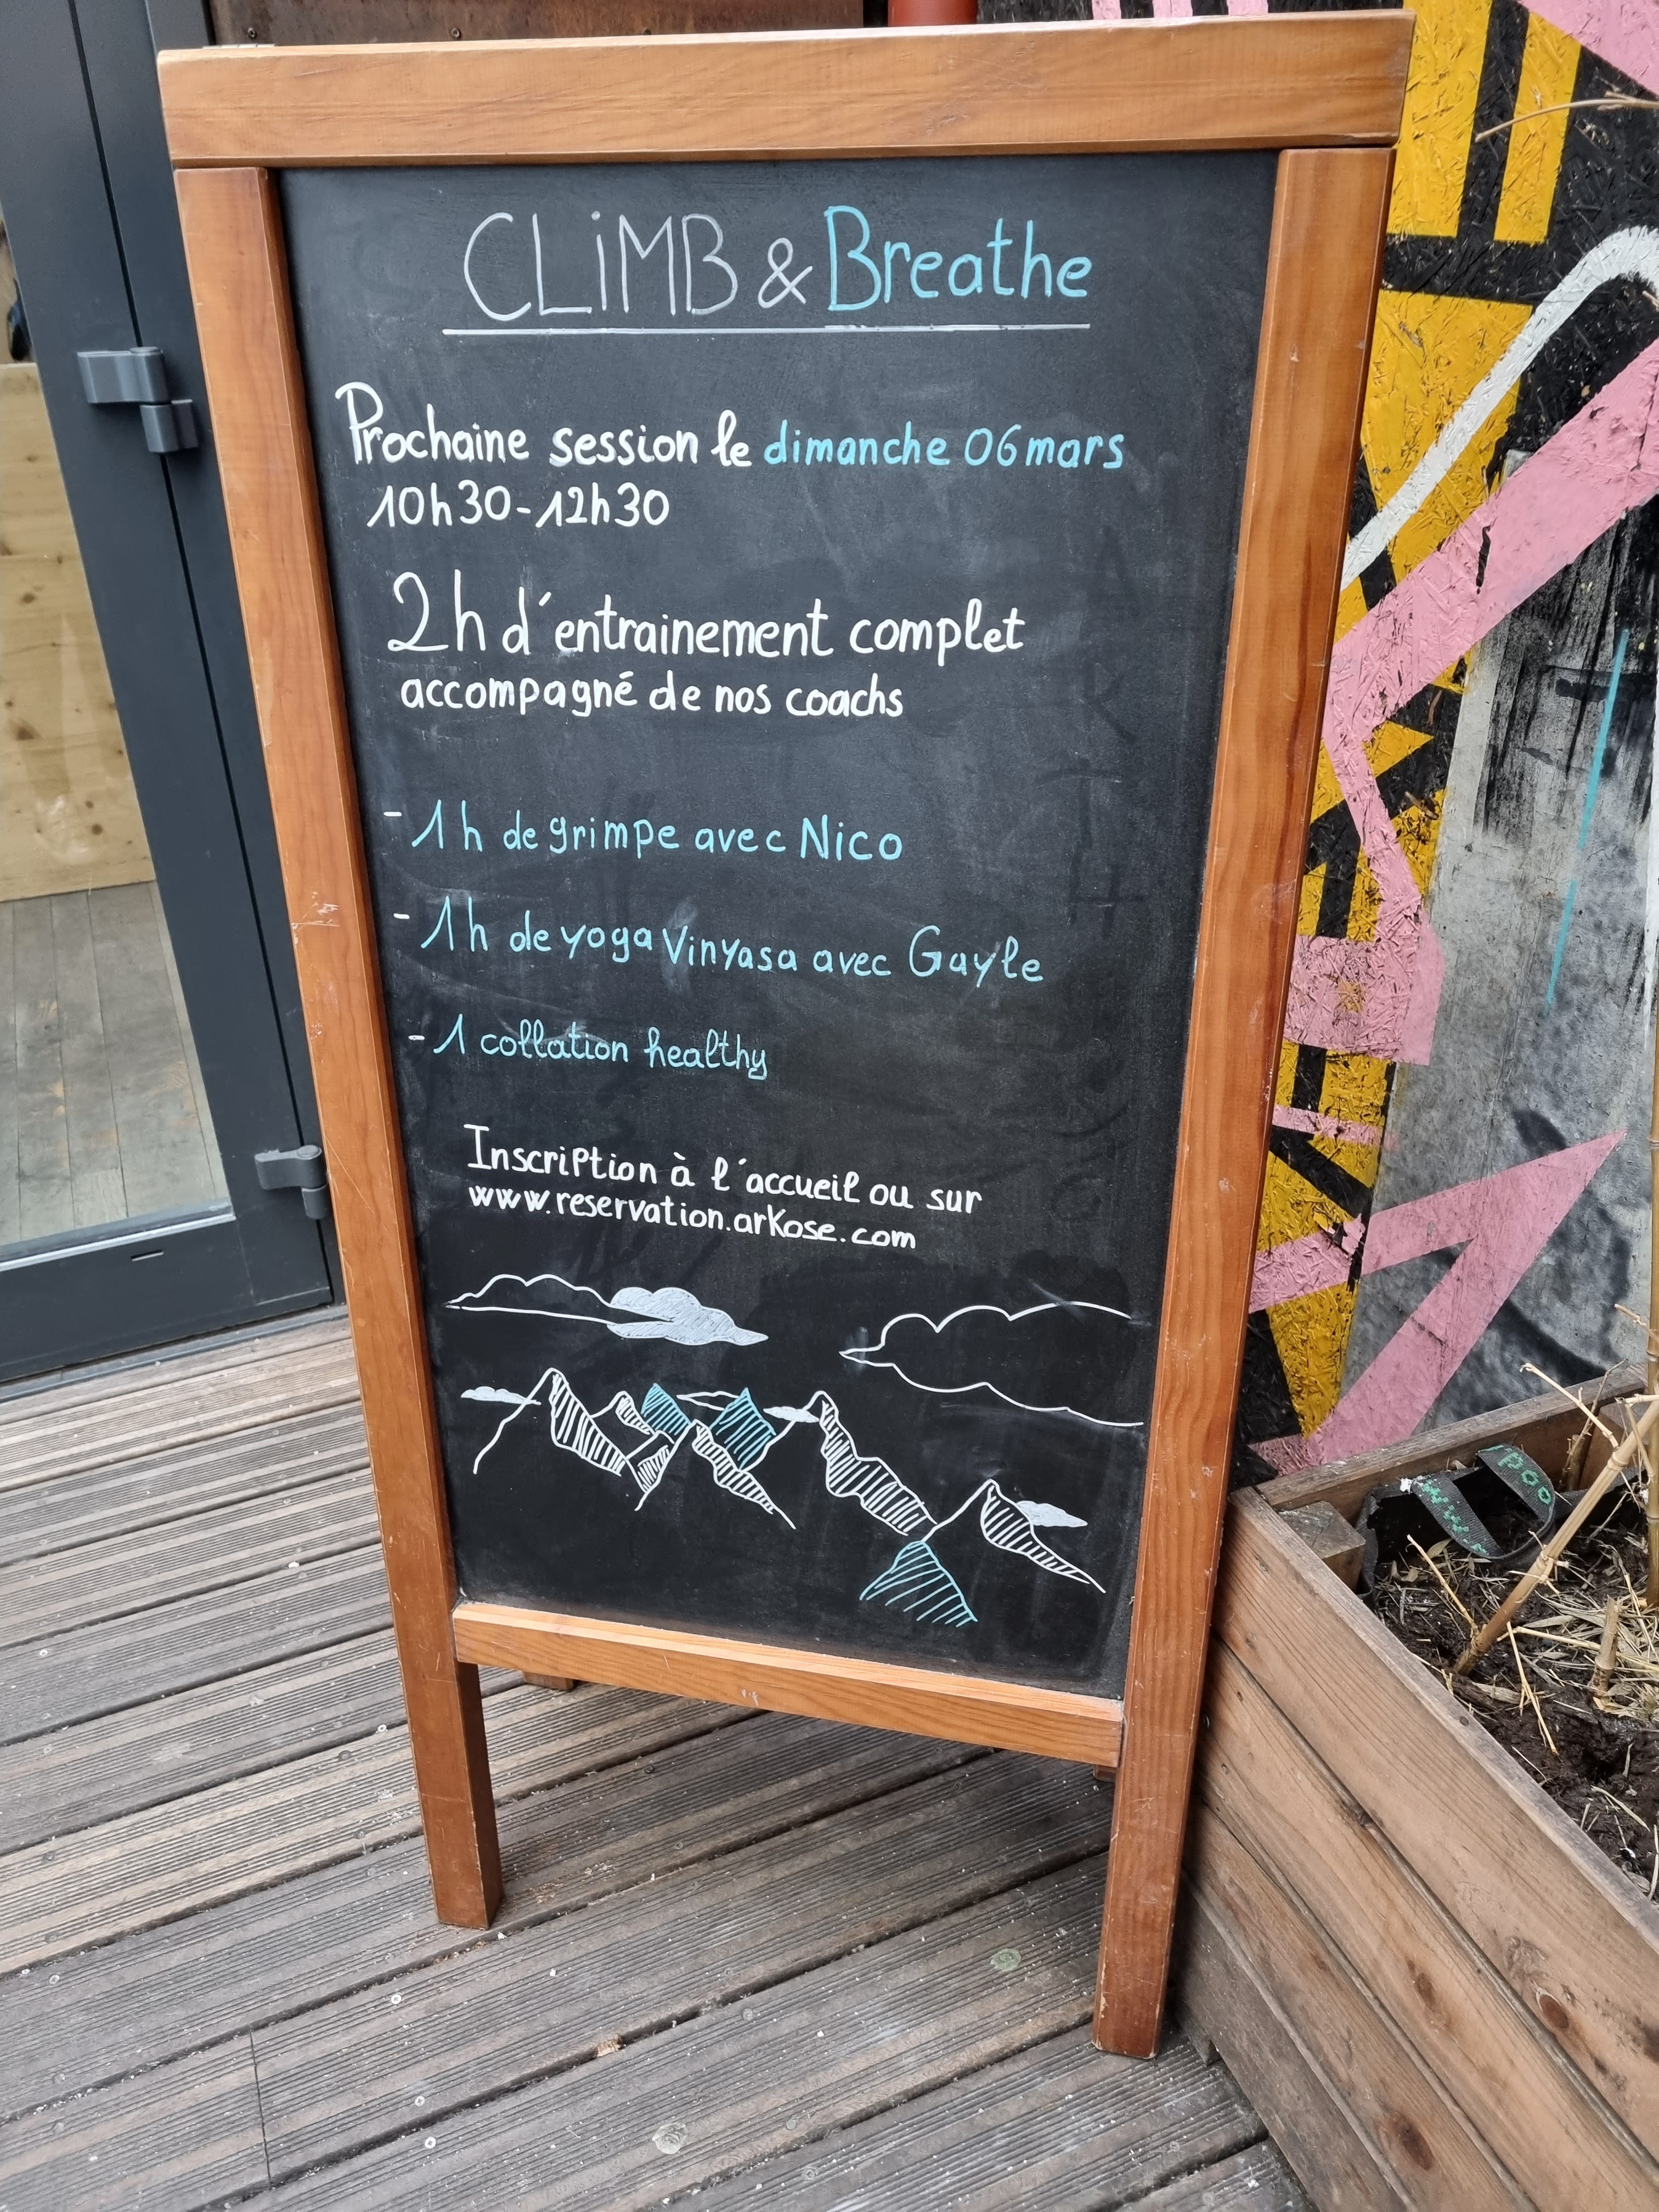 CLiMB & Breathe
Prochaine session le dimanche 06 mars
10h30-12h30
2h d'entrainement complet
accompagné de nos coachs
- 1h de grimpe avec Nico
- 1h de yoga Vinyasa avec Gayle
- 1 collation healthy
Inscription à l'accueil ou sur
www.reservation.arkose.com